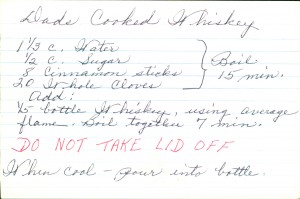 Dads Cooked Whiskey
1 1/3 c. Water
1/2 c. Sugar
8 Cinnamon sticks
20 Whole Cloves
} Boil
15 min.
Add:
1/5 bottle Whiskey, using average
flame. Boil together 7 min.
DO NOT TAKE LID OFF
When cool - pour into bottle.